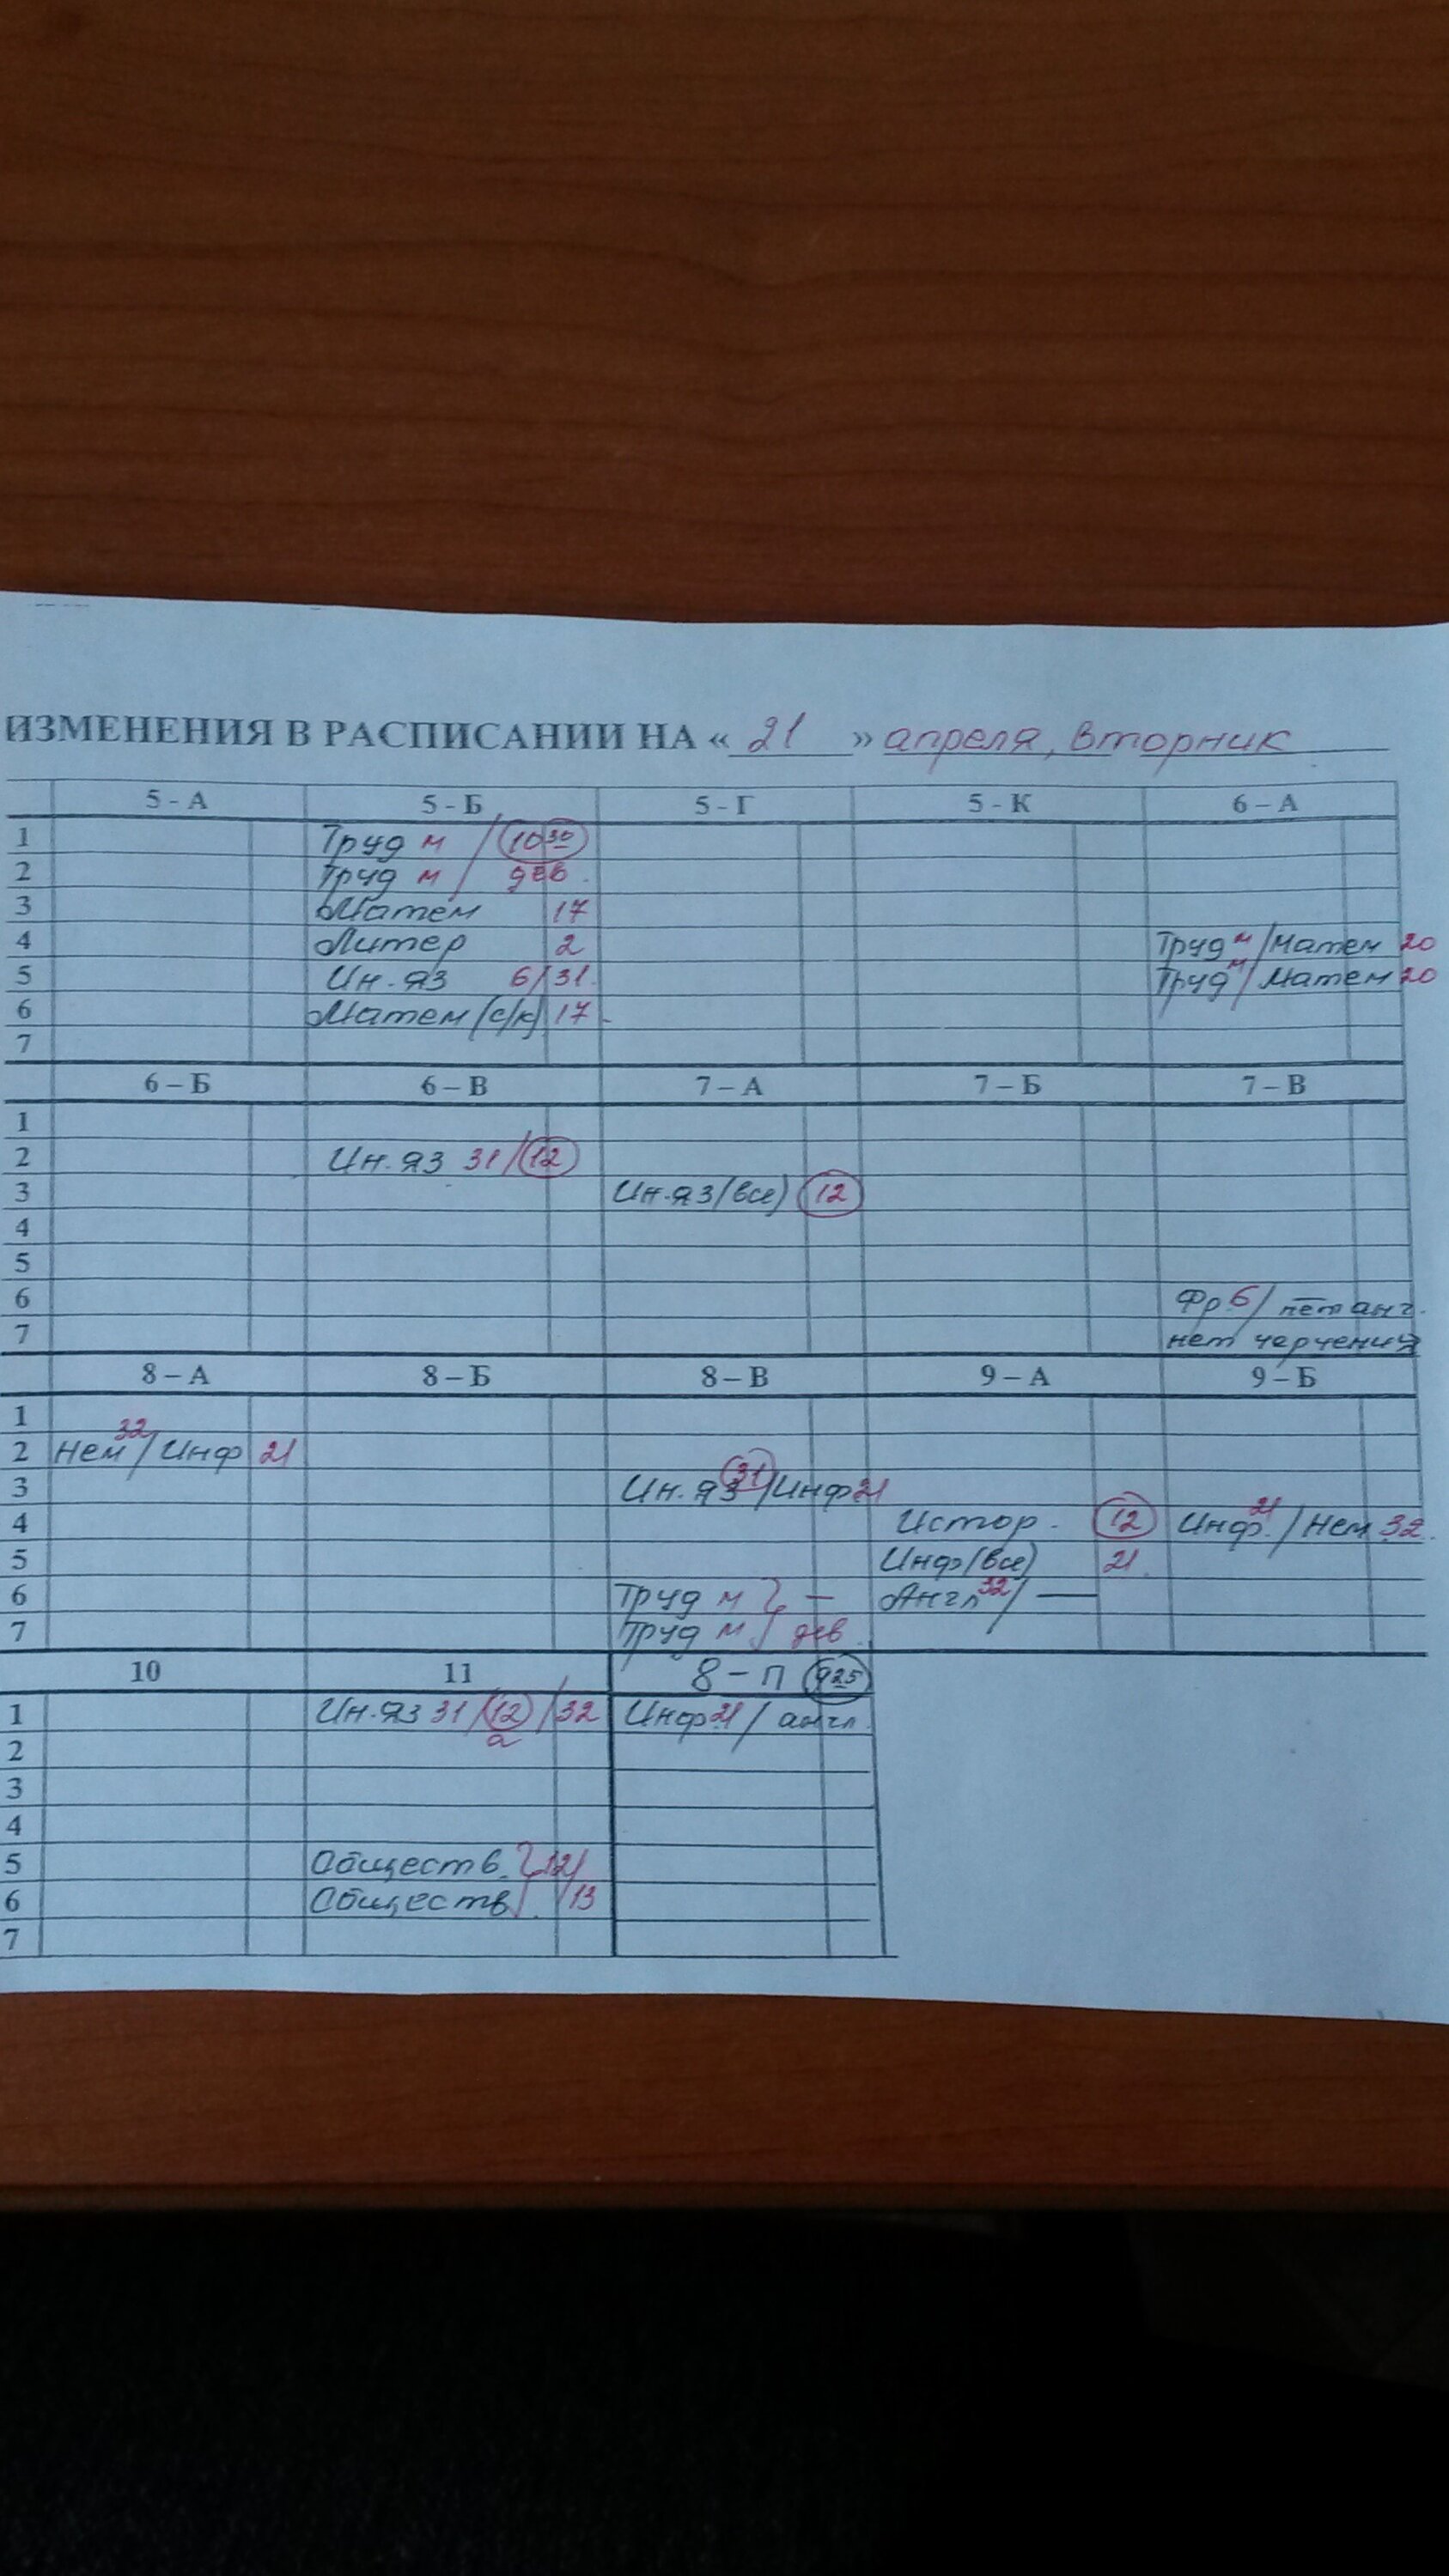 ИЗМЕНЕНИЯ В РАСПИСАНИИ НА « 21 » апреля, вторник
5 - А 5 - Б 5 - Г 5 - К 6 – А
1 Труд м / 10 30
2 Труд м / дев.
3 Матем 17
4 Литер 2 Труд м / Матем 20
5 Ин. яз 6/31. Труд м / Матем 20
6 Матем (с/к) 17
7
6 – Б 6 – В 7 – А 7 – Б 7 – В
1
2 Ин. яз 31 / 12
3 Ин. яз (все) 12
4
5
6 Фр 6 / нет анг.
7 нет черчения
8 – А 8 – Б 8 – В 9 – А 9 – Б
1
2 Нем 32 / Инф 21
3 Ин. яз 31 / Инф 21
4 Истор. 12 Инф. 21 / Нем 32.
5 Инф (все) 21.
6 Труд м — Англ 32 / —
7 Труд м дев.
10 11 8 – П 9 25
1 Ин. яз 31 / 12 а / 32 Инф 21 / англ.
2
3
4
5 Обществ. 12 /
6 Обществ. / 13
7